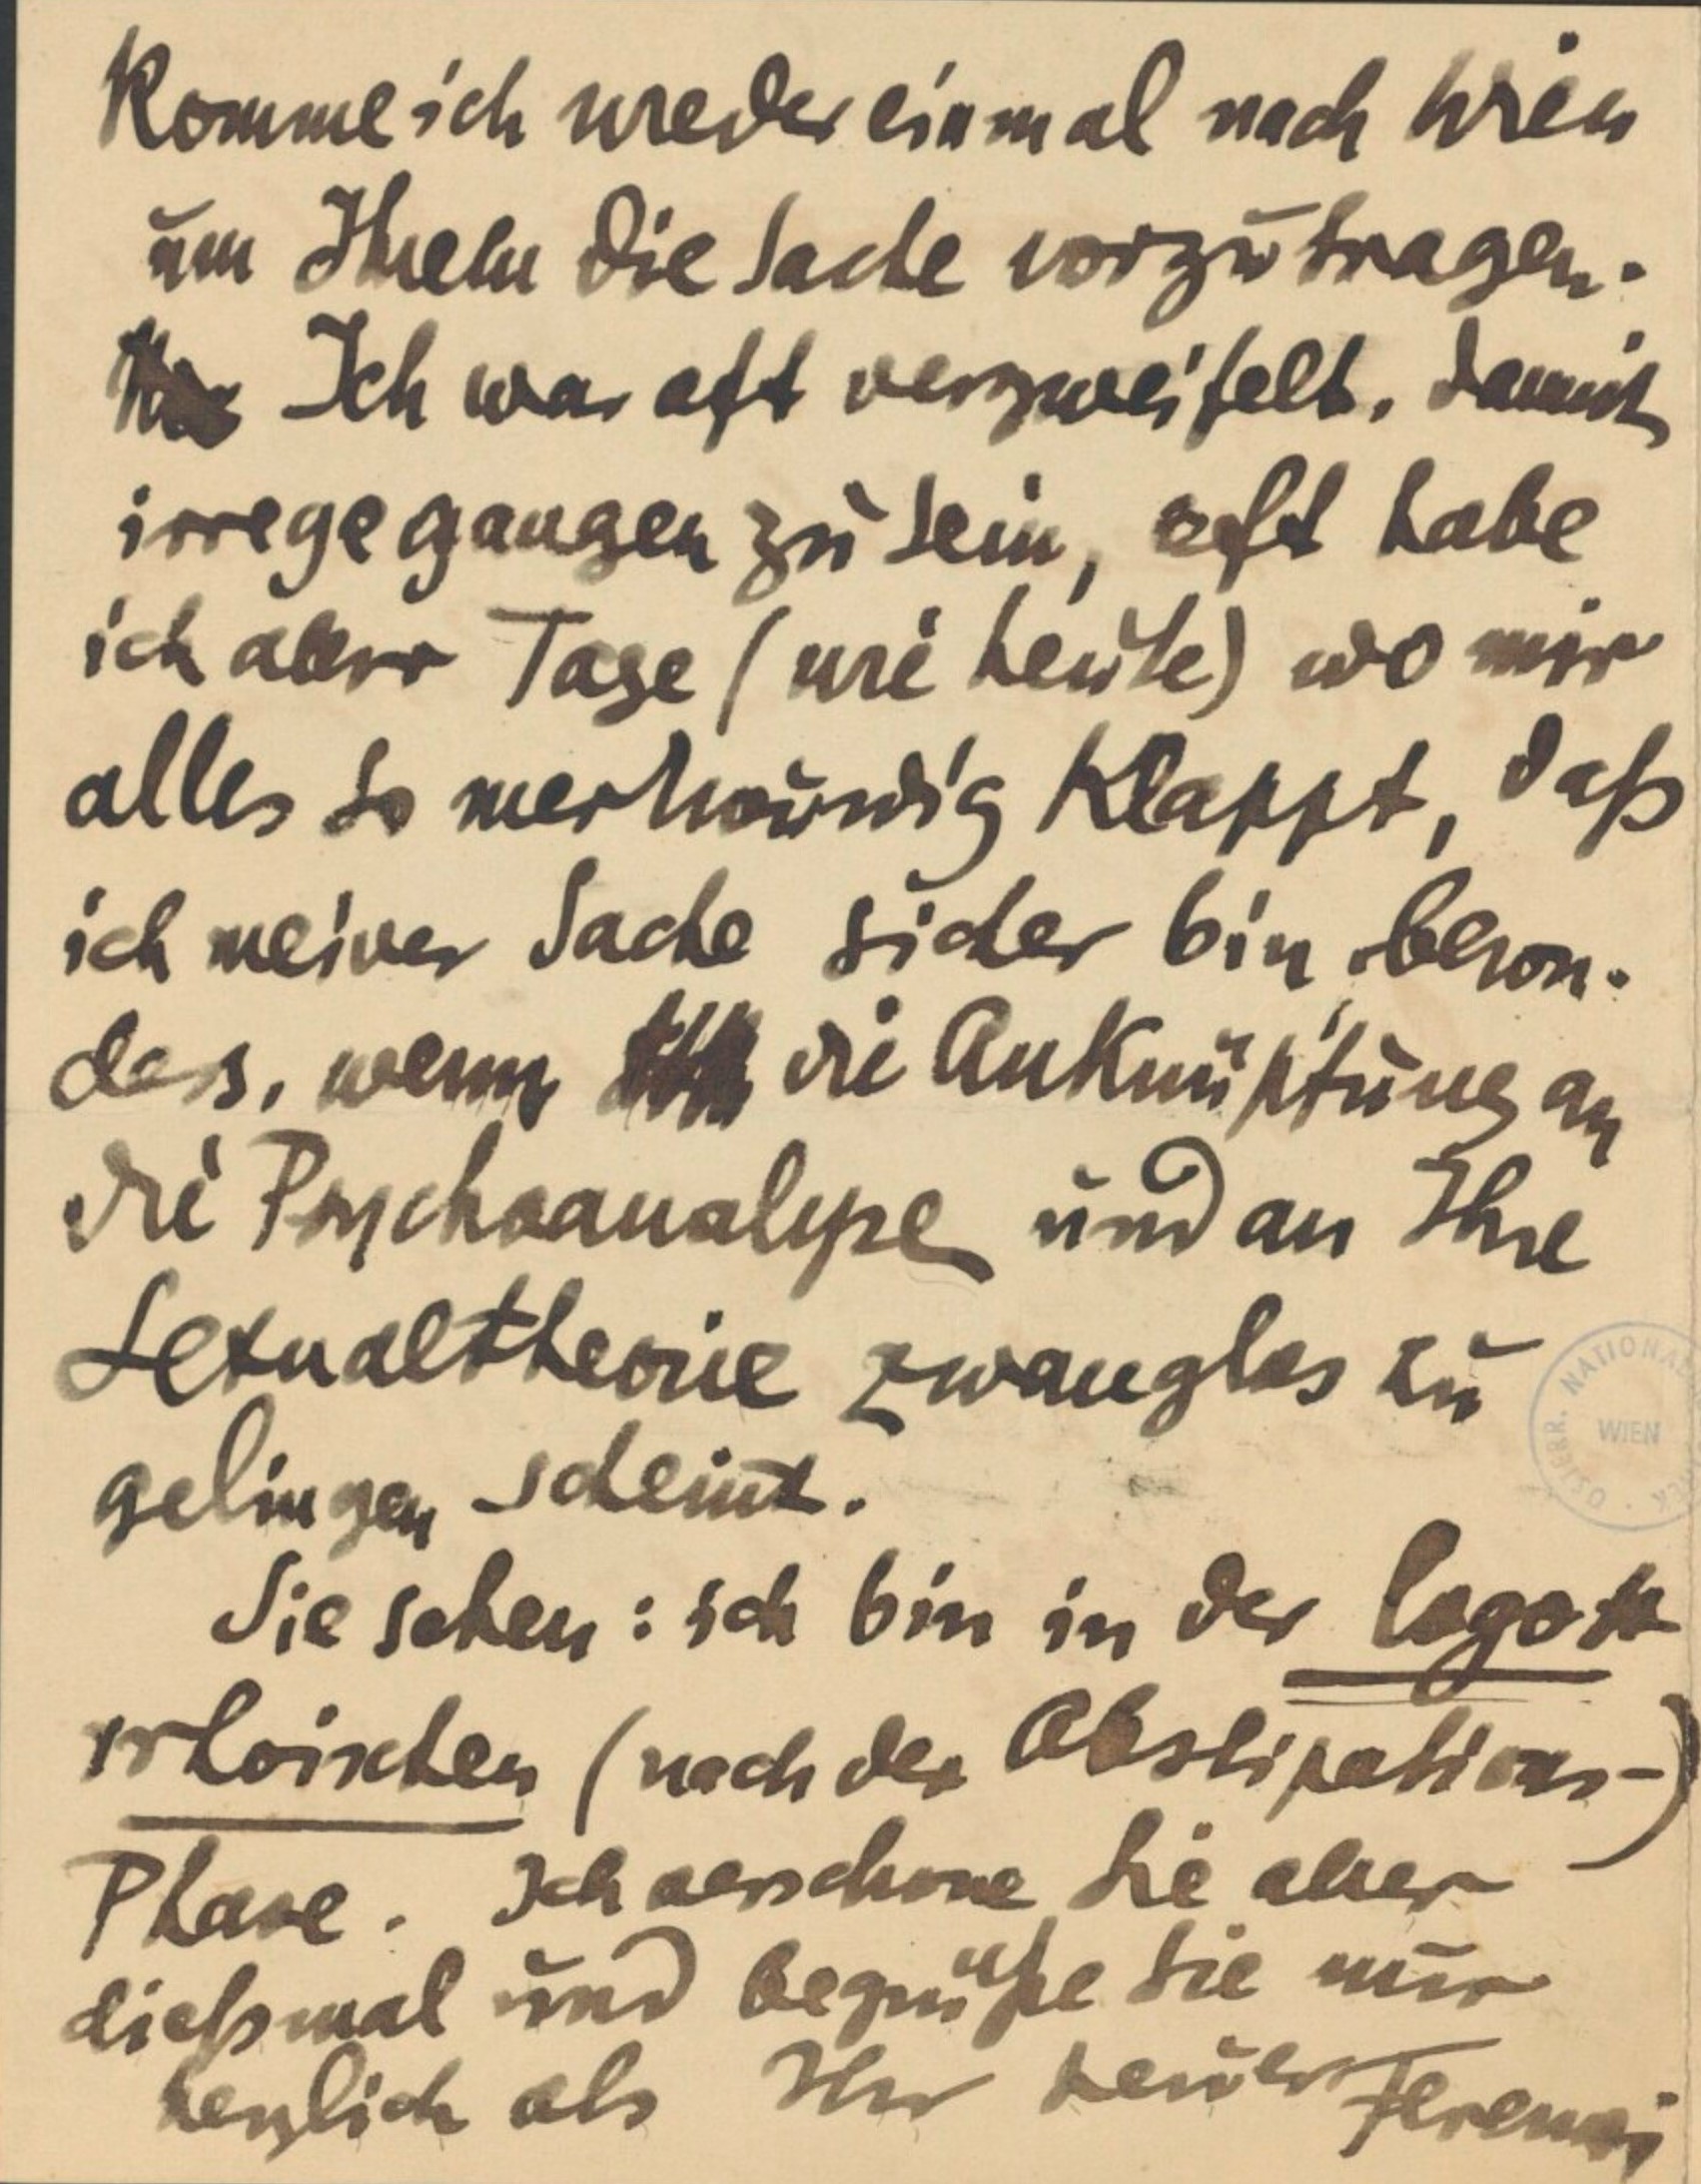 Komme ich wieder einmal nach Wien
um Ihnen die Sache vorzutragen.
Ich war oft verzweifelt, damit
irregegangen zu sein, oft habe
ich aber Tage (wie heute) wo mir
alles so merkwürdig klappt, daß
ich meiner Sache sicher bin, beson-
ders, wenn die Anknüpfung an
die Psychoanalyse und an Ihre
Sexualtheorie zwanglos zu
gelingen scheint.
Sie sehen: ich bin in der logor-
rhoischen (nach der Obstipations-)
Phase. Ich verschone Sie aber
dießmal und begrüße Sie nur
herzlich als Ihr treuer Ferenczi
ÖSTERR. NATIONAL
WIEN